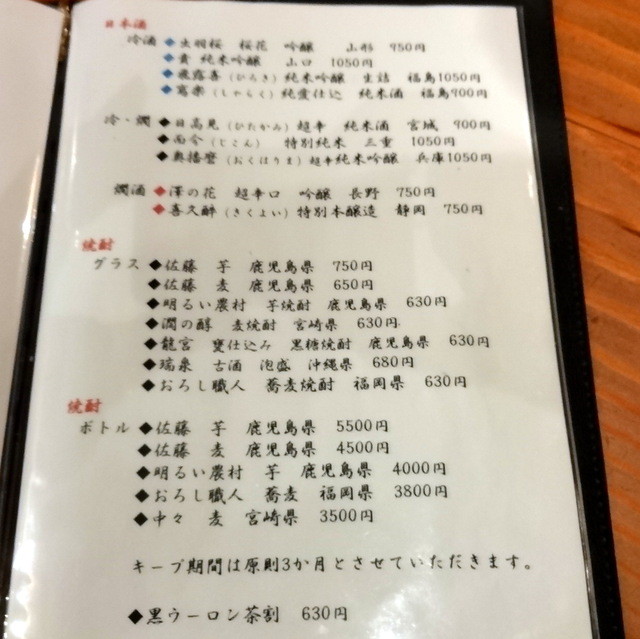 日本酒
冷酒 ◆出羽桜 桜花 吟醸 山形 950円
◆貴 純米吟醸 山口 1050円
◆飛露喜(ひろき)純米吟醸 生詰 福島1050円
◆寫楽(しゃらく)純愛仕込 純米酒 福島900円
冷・燗 ◆日高見(ひたかみ)超辛 純米酒 宮城 900円
◆而今(じこん) 特別純米 三重 1050円
◆奥播磨(おくはりま)超辛純米吟醸 兵庫1050円
燗酒 ◆澤の花 超辛口 吟醸 長野 750円
◆喜久酔(きくよい)特別本醸造 静岡 750円
焼酎
グラス ◆佐藤 芋 鹿児島県 750円
◆佐藤 麦 鹿児島県 650円
◆明るい農村 芋焼酎 鹿児島県 630円
◆潤の醇 麦焼酎 宮崎県 630円
◆龍宮 甕仕込み 黒糖焼酎 鹿児島県 630円
◆瑞泉 古酒 泡盛 沖縄県 680円
◆おろし職人 蕎麦焼酎 福岡県 630円
焼酎
ボトル ◆佐藤 芋 鹿児島県 5500円
◆佐藤 麦 鹿児島県 4500円
◆明るい農村 芋 鹿児島県 4000円
◆おろし職人 蕎麦 福岡県 3800円
◆中々 麦 宮崎県 3500円
キープ期間は原則3か月とさせていただきます。
◆黒ウーロン茶割 630円